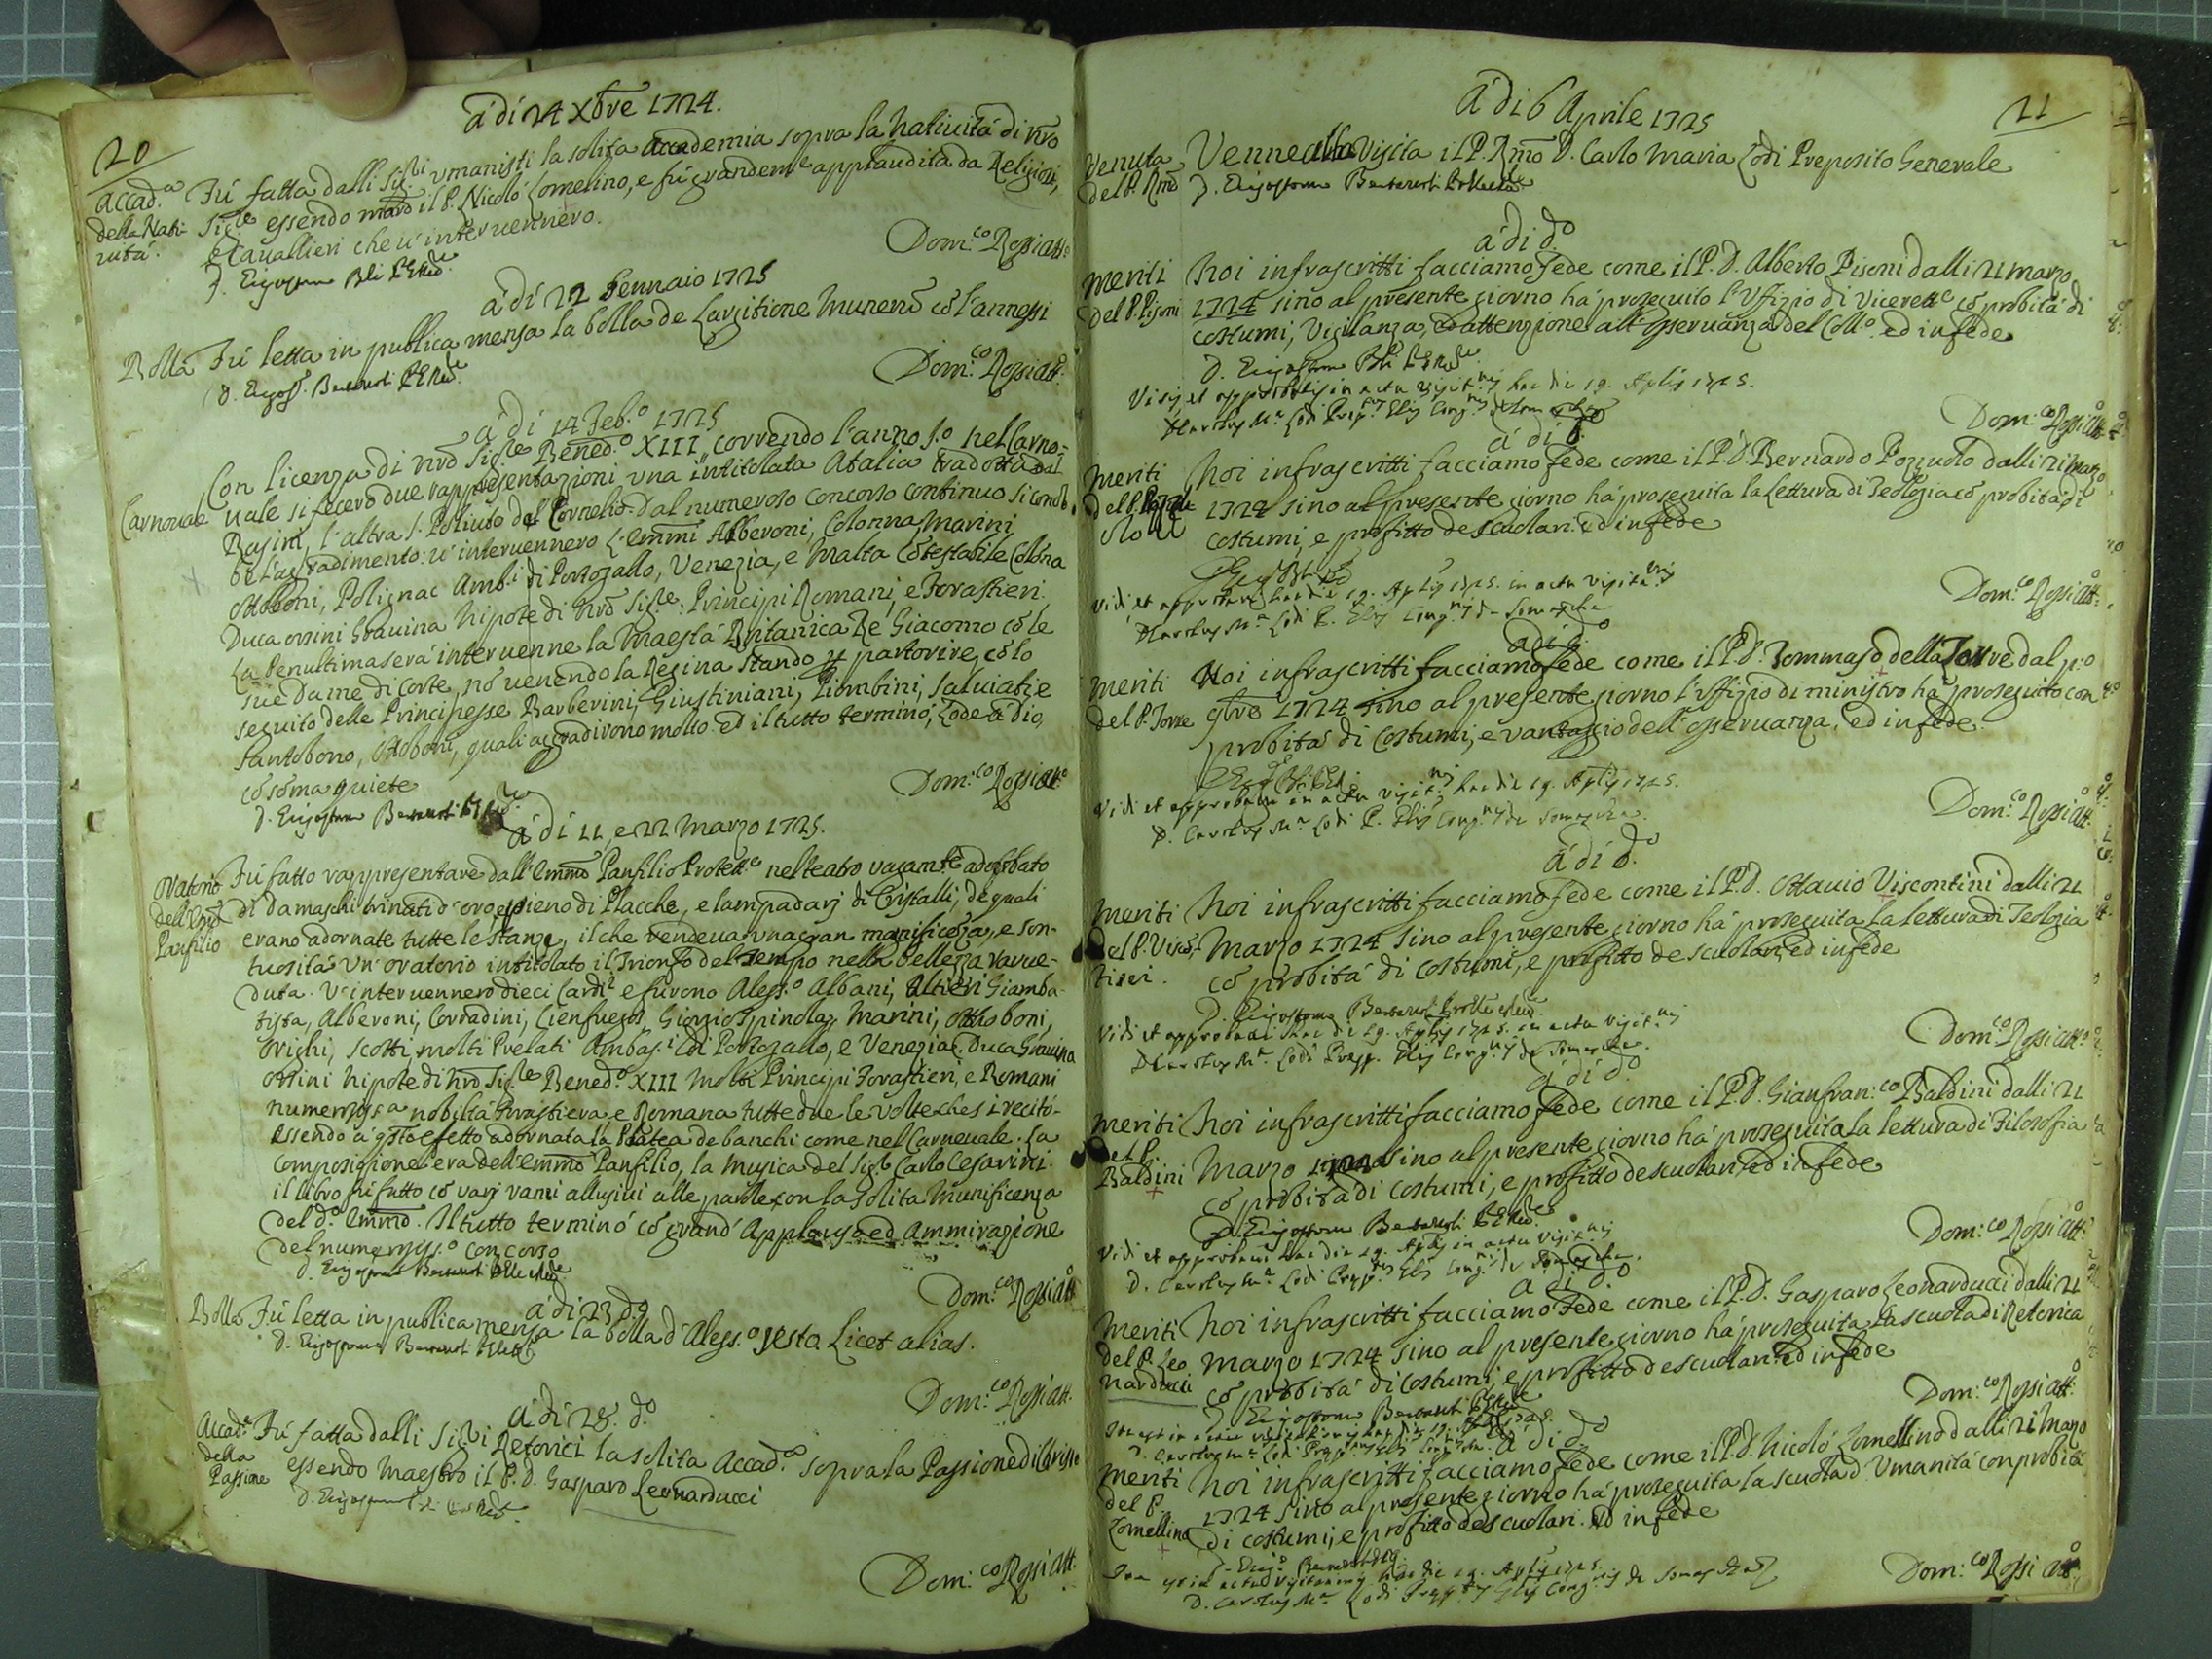 20
á di 24 Xbre 1724.
Accad.a
della Nati-
vitá.
Fú fatta dalli Sig.ri Umanisti la solita Accademia sopra la Natiuitá di Nro
Sig.re essendo mārō il P. Nicoló Lomelino, e fú grandem.e applaudita da Religiosi,
e Cauallieri che u'interuennero.
Dom.co Rossi Att.o
á di 22 Gennaio 1725
Bolla
Fú letta in publica mensa la bolla de Largitione Munerū cō l'annessi
Dom.co Rossi Att.
á di 14 Feb.o 1725
Carnouale
Con licenza di nrō Sig.re Bened.o XIII correndo l'anno S.o nel Carno-
uale si fecero due rappresentazioni una intitolata Atalia tradotta dal
Rasini, l'altra S. Poliuto del Cornelio. Dal numeroso concorso continuo si conob
be l'aggradimento. u'interuennero l'Emmi Alberoni, Colonna, Marini
Ottoboni, Polignac Amb.i di Portogallo, Venezia, e Malta Cōtestabile Colōna
Duca Orsini Grauina Nipote di Nrō Sig.re: Principi Romani, e Forastieri.
La Penultima sera interuenne la Maestá Britanica Re Giacomo cō le
sue Dame di Corte, nō uenendo la Regina stando p partorire, cō lo
seguito delle Principesse Barberini, Giustiniani, Piombini, Saluiati, e
Santobono, Ottoboni, quali aggradirono molto. ed il tutto terminó, Lode á Dio,
cō sōma quiete
Dom.co Rossi Att.o
á di 21, e 22 Marzo 1725.
Oratorio
dell'Em.o
Panfilio
Fú fatto rappresentare dall'Emmo Panfilio Protett.e nel teatro vagam.te adobbato
di damaschi trinati d'oro e pieno di Placche, e lampadarj di Cristalli, de quali
erano adornate tutte le stanze, il che rendeua una gran magnificēza, e son-
tuositá Un' oratorio intitolato il Trionfo del Tempo nella Bellezza rauue-
duta. V'interuennero dieci Card.li e furono Aless.o Albani, Altieri Giamba-
tista, Alberoni, Corradini, Cienfuegos, Giorgio Spinola, Marini, Ottoboni,
Orighi, Scotti, molti Prelati Ambas.i di Portogallo, e Venezia. Duca Grauina
Orsini Nipote di Nrō Sig.re Bened.o XIII Molti Principi Forastieri, e Romani
numerosissa nobiltá forastiera, e Romana tutte due le volte che si recitó.
Essendo á qsto effetto adornata la Platea de banchi come nel Carneuale. La
composizione era dell'Emmo Panfilio, la Musica del Sig.r Carlo Cesarini.
il libro fú fatto cō varj rami allusiui alle parole con la solita Munificenza
del d.o Emmo. Il tutto terminó cō grand' Applauso ed Ammirazione
del numeroyss.o concorso
Dom.co Rossi Att.
á di 23 d.o
Bolla
Fú letta in publica mensa la bolla d'Aless.o Sesto. Licet alias.
Dom.co Rossi Att.
á di 28. d.o
Accad.a
della
Passione
Fú fatta dalli Sig.ri Retorici la solita Accad.a sopra la Passione di Cristo
essendo Maestro il P. D. Gasparo Leonarducci
Dom.co Rossi Att.
21
á di 6 Aprile 1725
Venuta
del P. Rmō
Venne alla Visita il P. Rmō D. Carlo Maria Lodi Preposito Generale
á di d.o
Meriti
del P. Pisoni
Noi infrascritti facciamo fede come il P. D. Alberto Pisoni dalli 21 marzo
1724 sino al presente giorno há proseguito l'Uffizio di Vicerett.e cō probitá di
costumi, Vigilanza, ed attenzione all'osseruanza del Coll.o ed in fede
Dom.co Rossi Att.o
á di d.o
Meriti
Noi infrascritti facciamo fede come il P. D. Bernardo Pozzuolo dalli 21 marzo
1724 sino al presente giorno há proseguita la Lettura di Teologia cō probitá di
costumi, e profitto de scuolari. ed in fede
Vidi et approbavi hac die 19. Aplis 1725. in actu visita.nis
Dom.co Rossi Att.o
á di d.o
Meriti
del P. Torre
Noi infrascritti facciamo fede come il P. D. Tommaso della Torre dal p.o
9bre 1724 sino al presente giorno l'Uffizio di ministro há proseguito con
probitá di Costumi, e vantaggio dell'osseruanza, ed in fede.
Vidi et approbavi in actu visit.nis hac die 19. Aplis 1725.
D. Carolus M.a Lodi P. Glis Cong.nis de Somascha.
Dom.co Rossi Att.o
á di d.o
Meriti
del P. Viscō-
tini.
Noi infrascritti facciamo fede come il P. D. Ottauio Viscontini dalli 21
Marzo 1724 sino al presente giorno há proseguita la lettura di Teologia
cō probitá di costumi, e profitto de scuolari, ed in fede
Vidi et approbavi hac die 19. Aplis 1725. in actu visit.nis
Dom.co Rossi Att.o
á di d.o
Meriti
del P.
Baldini
Noi infrascritti facciamo fede come il P. D. Gianfran.co Baldini dalli 21
Marzo 1724 sino al presente giorno há proseguita la lettura di Filosofia
cō probitá di costumi, e profitto de scuolari, ed in fede
Vidi et approbavi hac die 19. Aplis in actu visit.nis
Dom.co Rossi Att.o
á di d.o
Meriti
del P. Leo
narducci
Noi infrascritti facciamo fede come il P. D. Gasparo Leonarducci dalli 21
marzo 1724 sino al presente giorno há proseguita la scuola di Retorica
cō probitá di costumi, e profitto de scuolari. ed in fede
Dom.co Rossi Att.o
á di d.o
Meriti
del P.
Lomellino
Noi infrascritti facciamo fede come il P. D. Nicoló Lomellino dalli 21 Marzo
1724 sino al presente giorno há proseguita la scuola d'Umanitá con probitá
di costumi, e profitto de scuolari. Ed in fede
Dom.co Rossi Att.o